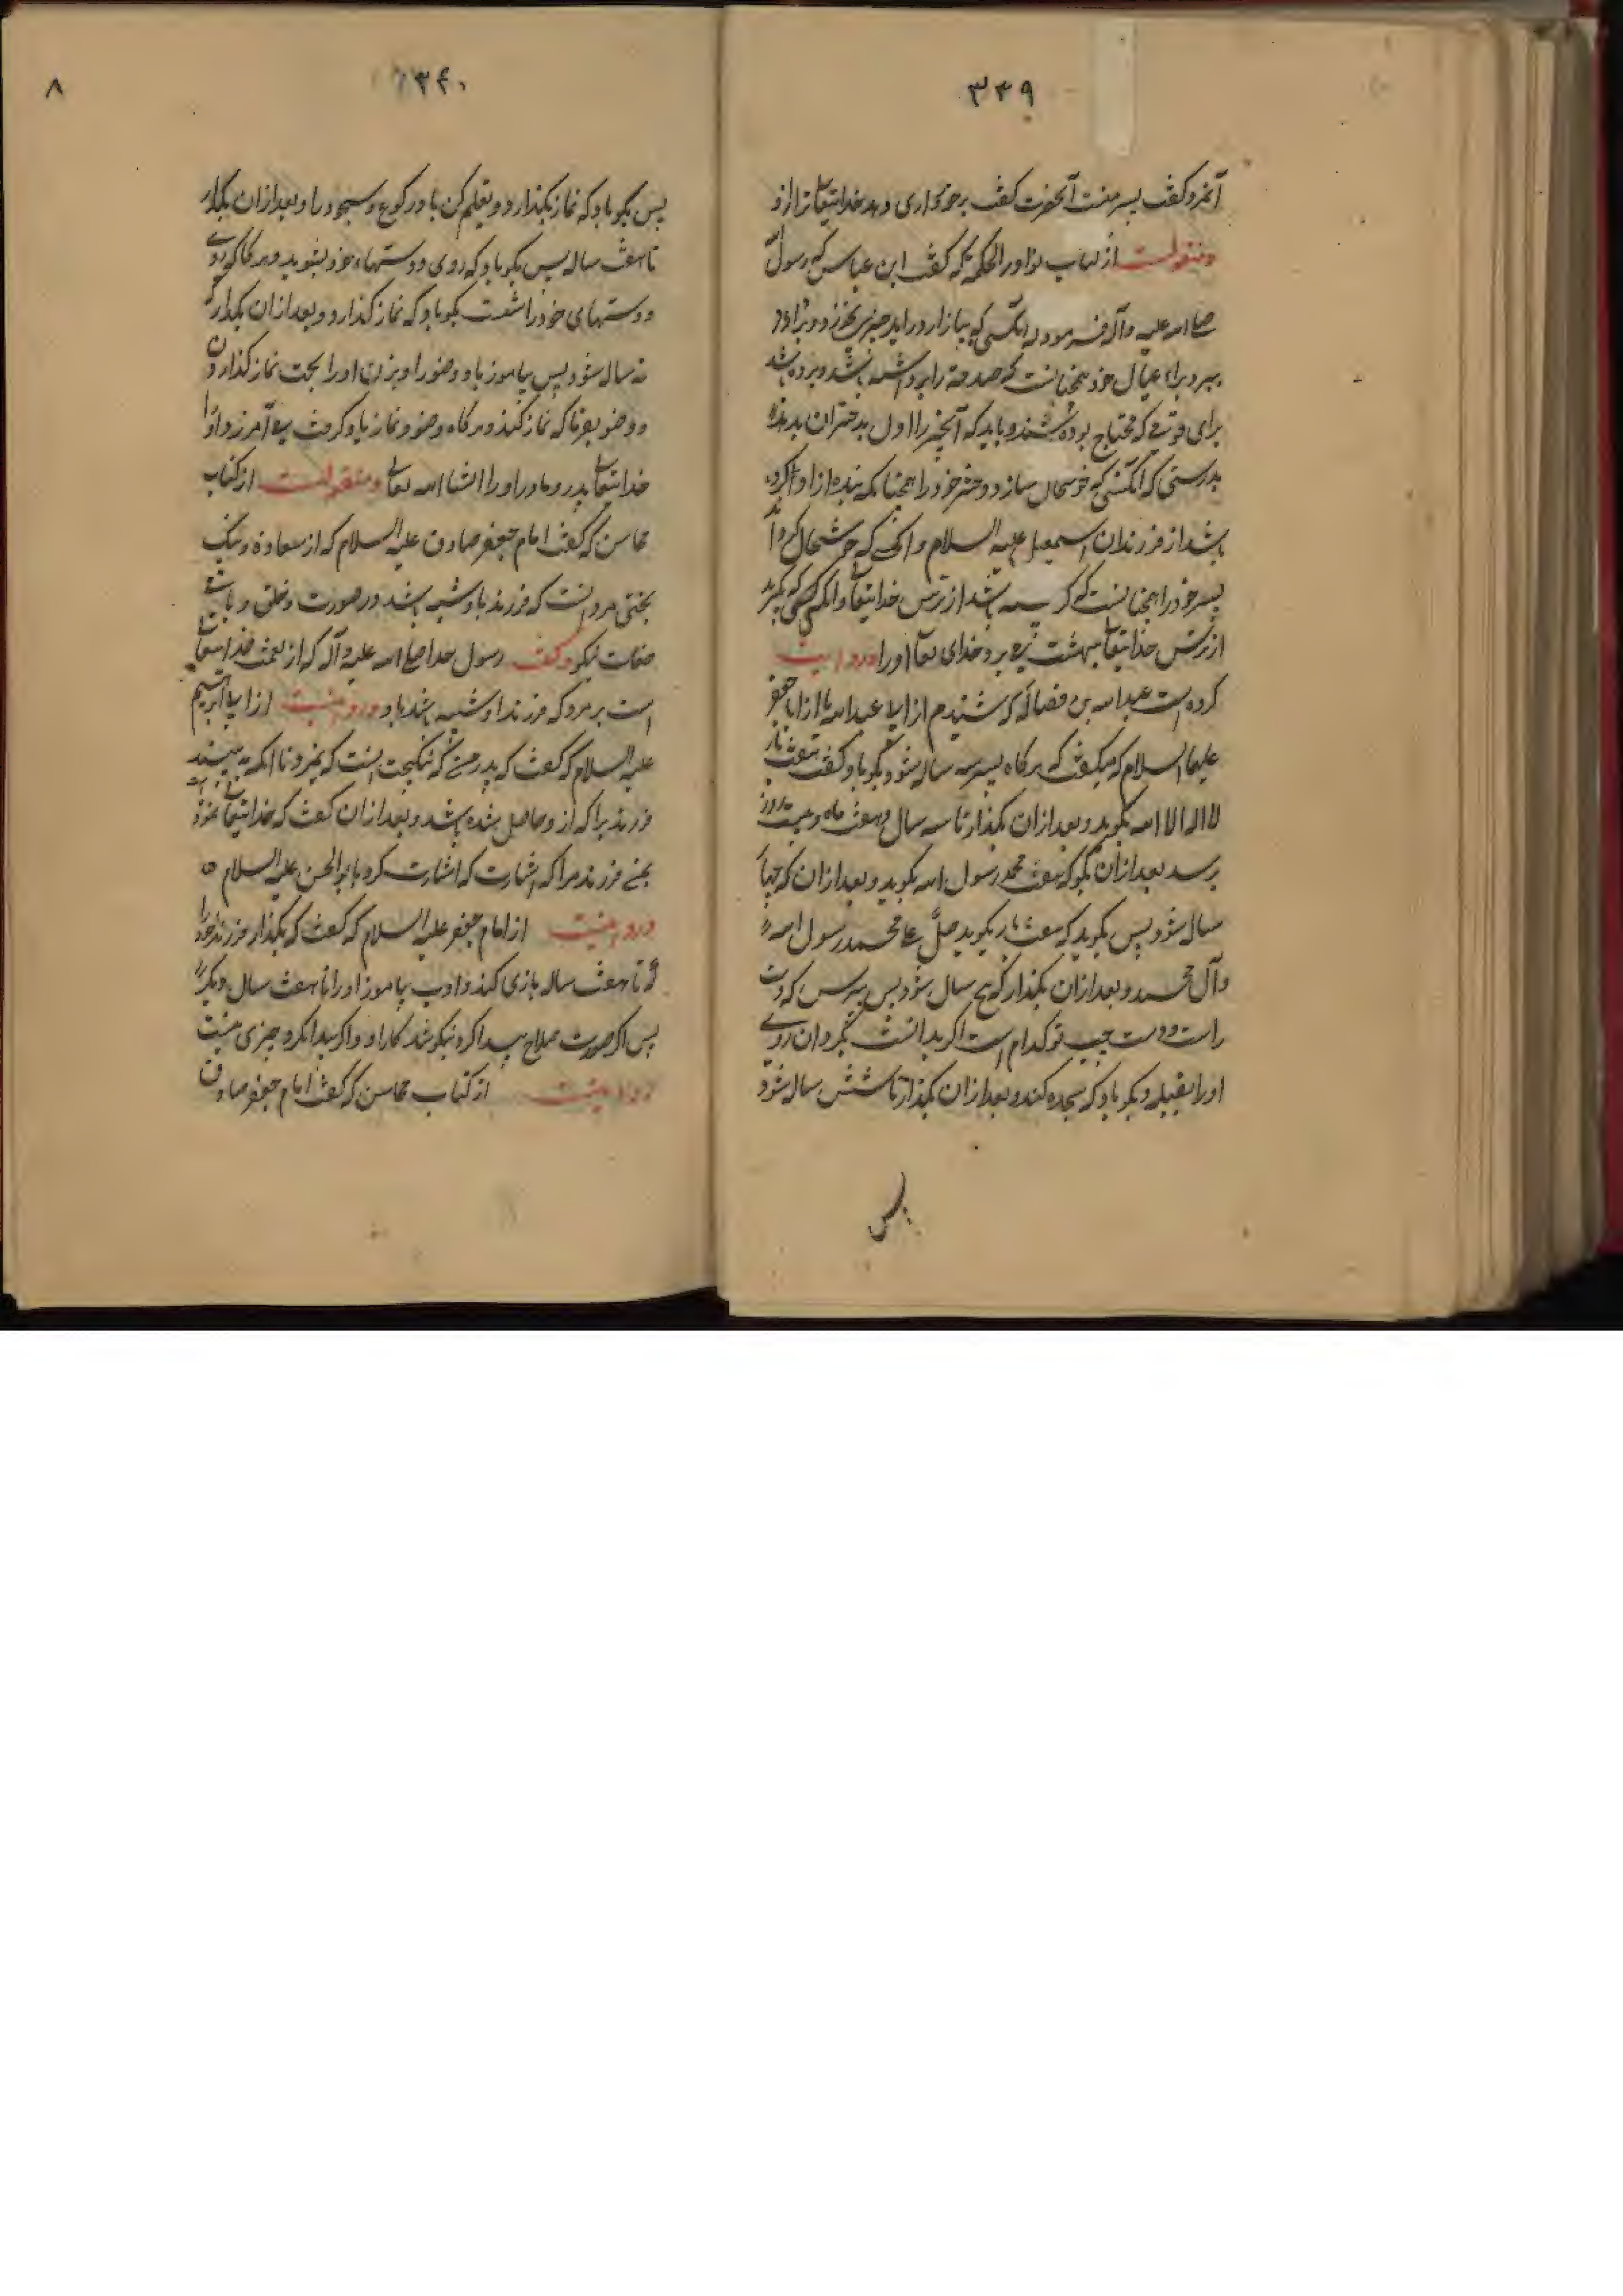 ۳۳۹
آنمرد گفت پسر منست آنحضرت گفت برخورداری دهد خدایتعالی ترا ازو
ومنقولست از کتاب نوادر الحکمه که گفت ابن عباس که رسول
صلی الله علیه وآله فرموده انکسی که ببازار درآید چیزی بخرد و
ببرد برای عیال خود همچنانست که صدقه را برداشته باشد و برده باشد
برای قومی که محتاج بوده باشند و باید که آنچیز را اول بدختران بدهد
بدرستی که انکسی که خوشحال سازد دختر خود را همچنانکه بنده ازاد کرده
باشد از فرزندان اسمعیل علیه السلام و انکسی که خوشحال کرداند
پسر خود را همچنانست که کریسته باشد از ترس خدایتعالی و انکسی که بکرید
از ترس خدایتعالی ببهشت می برد خدای تعالی اورا وروایت
کرده است عبدالله بن فضاله که شنیدم از ابی عبدالله یا از ابا جعفر
علیهما السلام که میکفت که هرکاه پسر سه ساله شود بکو باو که هفت بار
لا اله الا الله بکوید و بعد ازان بکذار تا سه سال و هفت ماه و بیست روز
برسد بعد ازان بکو که هفت محمد رسول الله بکوید و بعد ازان که چهار
سال شود پس بکوید که هفت بار بکوید صل علی محمد رسول الله
وآل محمد و بعد ازان بکذار که پنج سال شود پس بپرس که دست
راست و دست چپ تو کدام است اکر بدانست بکردان روی
اورا بقبله و بکو باو که سجده کند و بعد ازان بکذار تا شش ساله شود
پس
۳۴۰
۸
پس بکو باو که نماز بکذارد و تعلیم کن باو رکوع و سجود را و بعد ازان بکذار
تا هفت ساله پس بکو باو که روی و دستهاء خود بشوید و هرکاه که روی
و دستهای خود را شست بکو باو که نماز کذارد و بعد ازان بکذار که
نه ساله شود پس بیاموز باو وضو را و بزن اورا بجهت نماز کذاردن
و وضو بفرما که نماز کند و هرکاه وضو و نماز یاد کرفت می آمرزد اورا
خدایتعالی پدر و مادر اورا انشاء الله تعالی ومنقولست از کتاب
محاسن که گفت امام جعفر صادق علیه السلام که از سعادة و نیک
بختی مرد انست که فرزند باو شبیه باشد در صورت و خلق و باقی
صفات نیکو وگفت رسول خدا صلی الله علیه وآله که از نعمت خدایتعالی
است بر مرد که فرزند او شبیه باشد باو ورویست از ابی ابرهیم
علیه السلام که گفت که پدر من که نیکبخت انست که نمیرد تا انکه به بیند
فرزندی را که ازو حاصل شده باشد و بعد ازان گفت که خدایتعالی نمود
بمن فرزند مرا که اشارت که اشارت کرد بابوالحسن علیه السلام ه
ورویست از امام جعفر علیه السلام که گفت که بکذار فرزند خود را
تا هفت ساله بازی کند و ادب بیاموز اورا تا هفت سال دیکر
پس اکر صورت صلاح پیدا کرد نیکو شد کار او و اکر پیدا نکرد چیزی نیست
وروایتست از کتاب محاسن که گفت امام جعفر صادق